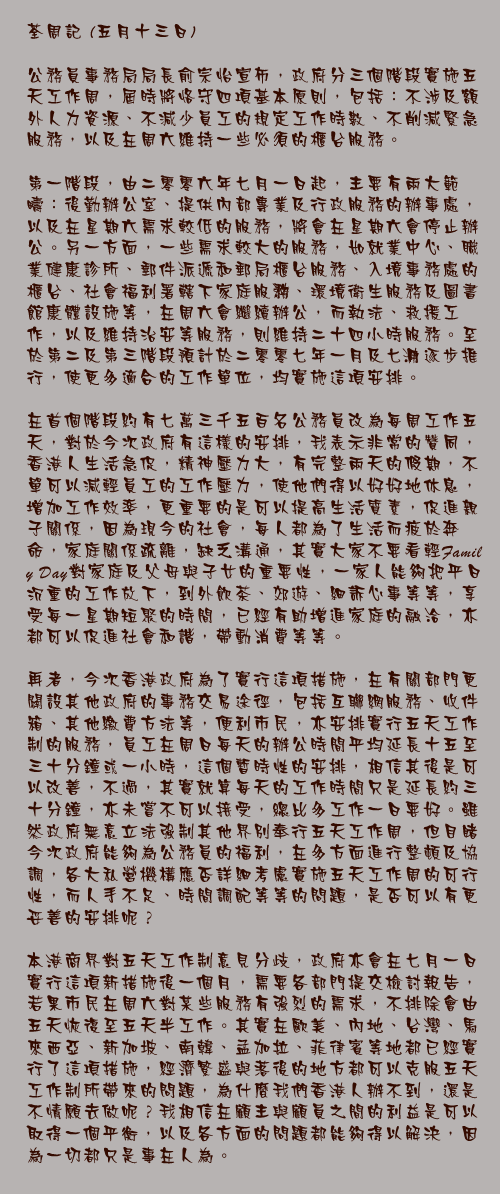 荃周記 (五月十三日)
公務員事務局局長俞宗怡宣布，政府分三個階段實施五
天工作周，屆時將恪守四項基本原則，包括：不涉及額
外人力資源、不減少員工的規定工作時數、不削減緊急
服務，以及在周六維持一些必須的櫃台服務。
第一階段，由二零零六年七月一日起，主要有兩大範
疇：後勤辦公室、提供內部專業及行政服務的辦事處，
以及在星期六需求較低的服務，將會在星期六會停止辦
公。另一方面，一些需求較大的服務，如就業中心、職
業健康診所、郵件派遞和郵局櫃台服務、入境事務處的
櫃台、社會福利署轄下家庭服務、環境衛生服務及圖書
館康體設施等，在周六會繼續辦公，而執法、救援工
作，以及維持治安等服務，則維持二十四小時服務。至
於第二及第三階段預計於二零零七年一月及七漸逐步推
行，使更多適合的工作單位，均實施這項安排。
在首個階段約有七萬三千五百名公務員改為每周工作五
天，對於今次政府有這樣的安排，我表示非常的贊同，
香港人生活急促，精神壓力大，有完整兩天的假期，不
單可以減輕員工的工作壓力，使他們得以好好地休息，
增加工作效率，更重要的是可以提高生活質素，促進親
子關係，因為現今的社會，每人都為了生活而疲於奔
命，家庭關係疏離，缺乏溝通，其實大家不要看輕Famil
y Day對家庭及父母與子女的重要性，一家人能夠把平日
沉重的工作放下，到外飲茶、郊遊、細訴心事等等，享
受每一星期短聚的時間，已經有助增進家庭的融洽，亦
都可以促進社會和諧，帶動消費等等。
再者，今次香港政府為了實行這項措施，在有關部門更
開設其他政府的事務交易途徑，包括互聯網服務、收件
箱、其他繳費方法等，便利市民，亦安排實行五天工作
制的服務，員工在周日每天的辦公時間平均延長十五至
三十分鐘或一小時，這個暫時性的安排，相信其後是可
以改善，不過，其實就算每天的工作時間只是延長約三
十分鐘，亦未嘗不可以接受，總比多工作一日要好。雖
然政府無意立法強制其他界別奉行五天工作周，但目睹
今次政府能夠為公務員的福利，在多方面進行整頓及協
調，各大私營機構應否詳細考慮實施五天工作周的可行
性，而人手不足、時間調配等等的問題，是否可以有更
妥善的安排呢？
本港商界對五天工作制意見分歧，政府亦會在七月一日
實行這項新措施後一個月，需要各部門提交檢討報告，
若果市民在周六對某些服務有強烈的需求，不排除會由
五天恢復至五天半工作。其實在歐美、內地、台灣、馬
來西亞、新加坡、南韓、孟加拉、菲律賓等地都已經實
行了這項措施，經濟繁盛與落後的地方都可以克服五天
工作制所帶來的問題，為什麼我們香港人辦不到，還是
不情願去做呢？我相信在顧主與顧員之間的利益是可以
取得一個平衡，以及各方面的問題都能夠得以解決，因
為一切都只是事在人為。